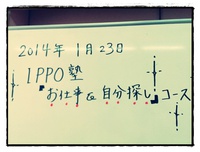 2014年 1月23日
IPPO塾
『お仕事&自分探し』コース